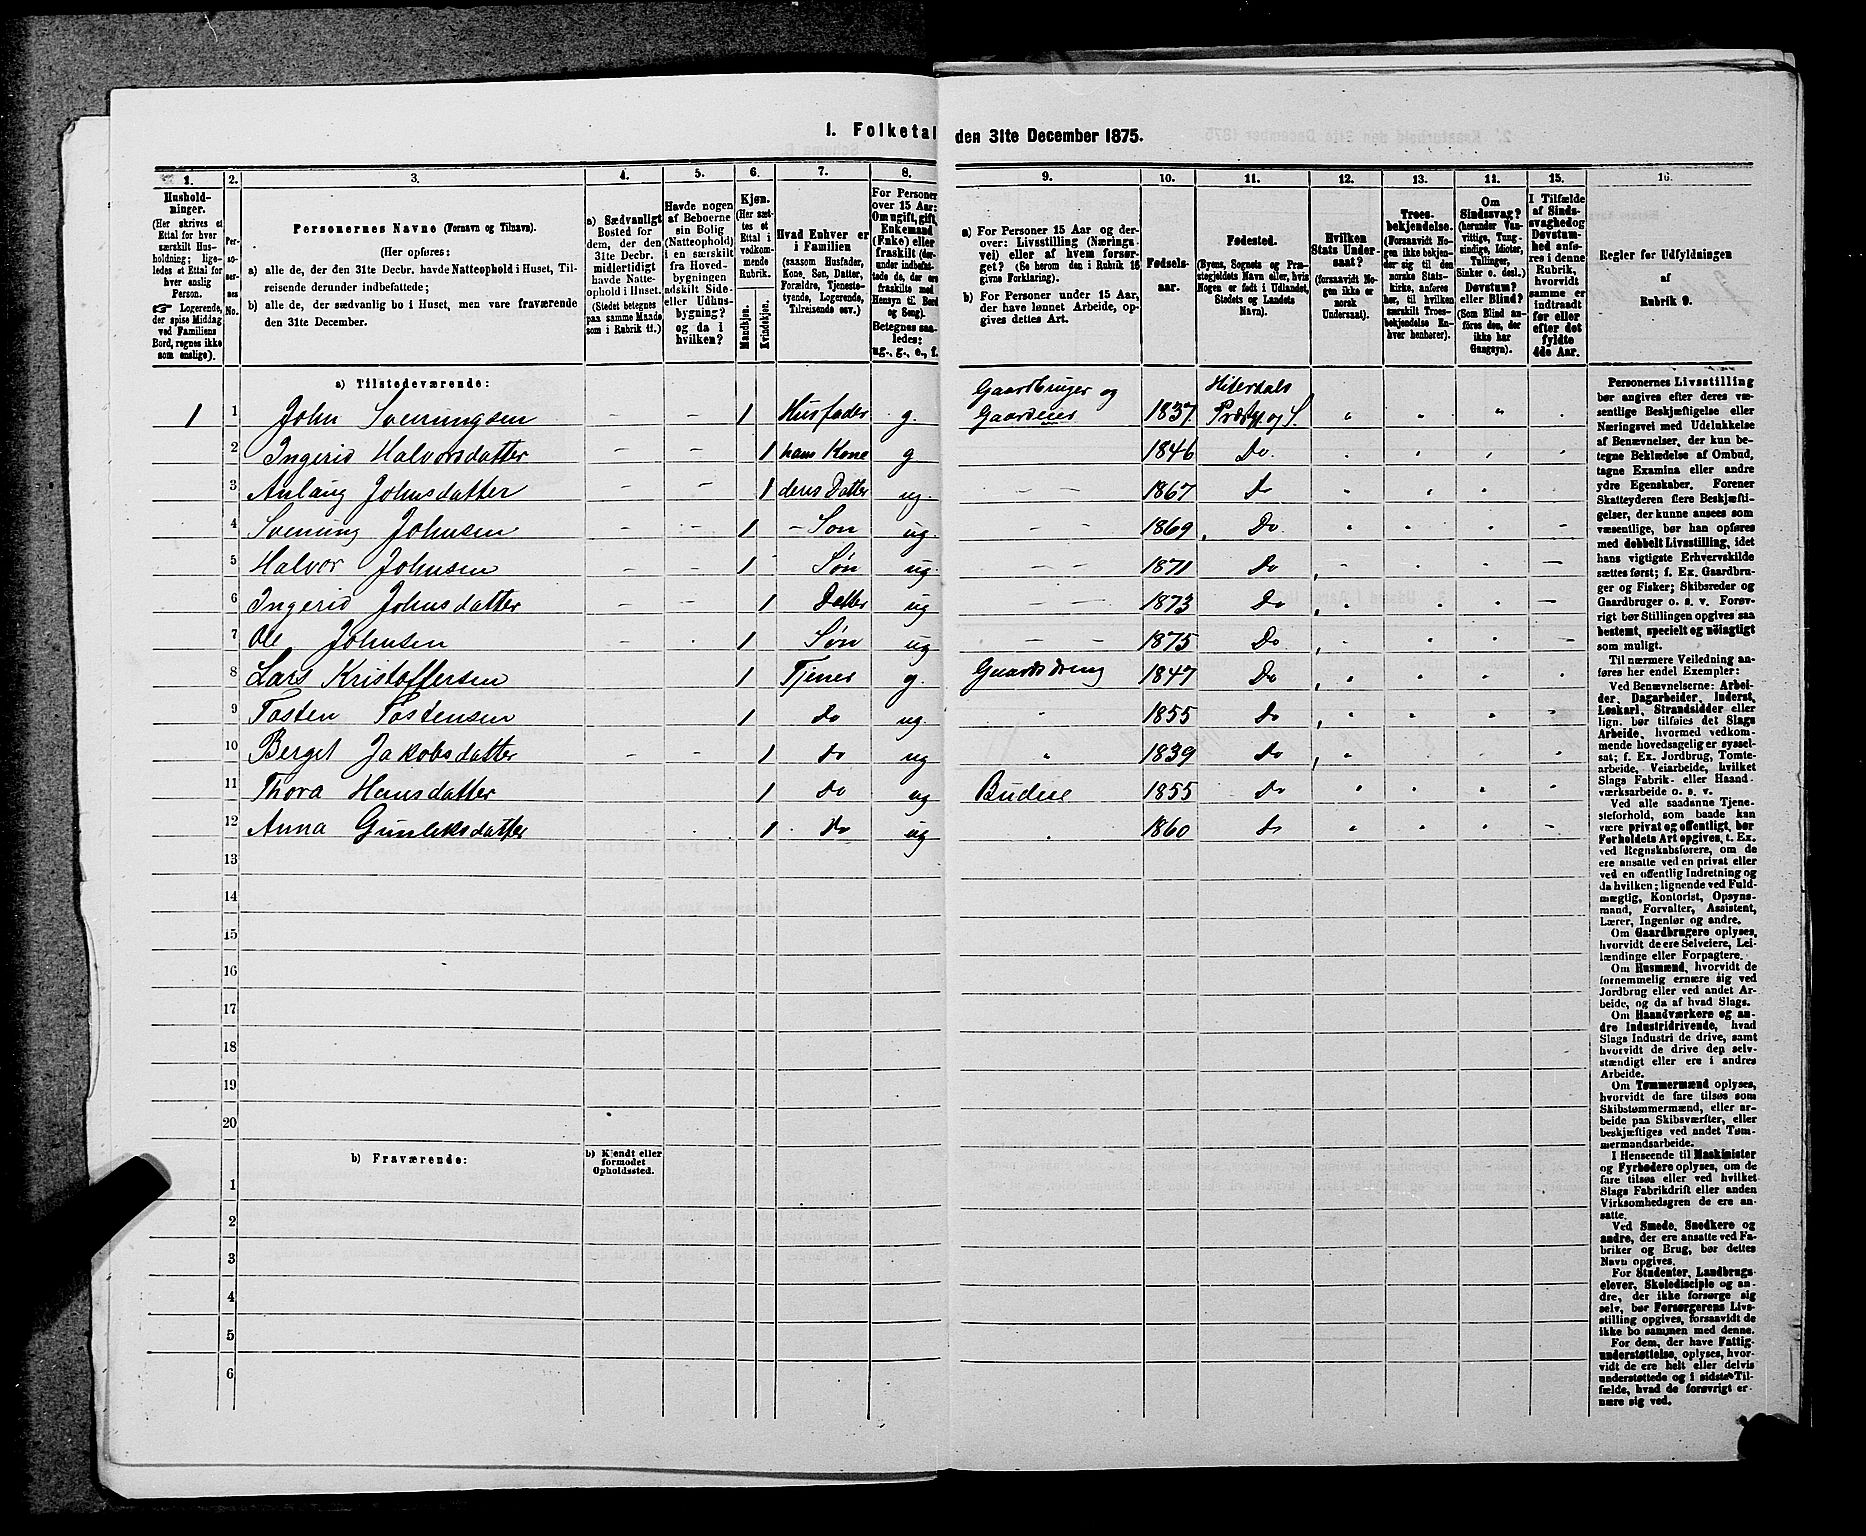 1. Folketal den 31te December 1875.
1. 2. 3. 4. 5. 6. 7. 8. 9. 10. 11. 12. 13. 14. 15. 16.
Husholdninger.
(Her skrives et Ettal for hver særskilt Husholdning; ligeledes et Ettal for hver enslig Person.
☞ Logerende, der spise Middag ved Familiens Bord, regnes ikke som enslige).
Personernes No.
Personernes Navne (Fornavn og Tilnavn).
(Her opføres:
a) alle de, der den 31te Decbr. havde Natteophold i Huset, Tilreisende derunder indbefattede;
b) alle de, der sædvanlig bo i Huset, men vare fraværende den 31te December.
a) Sædvanligt Bosted for dem, der den 31te Decbr. midlertidigt havde Natteophold i Huset. (Stedet betegnes paa samme Maade som i Rubrik 11.)
Havde nogen af Beboerne sin Bolig (Natteophold) i en særskilt fra Hovedbygningen adskilt Side- eller Udhusbygning? og da i hvilken?
Kjøn. (Her sættes et Ettal i vedkommende Rubrik.
Mandkjøn.
Kvindekjøn.
Hvad Enhver er i Familien
(saasom Husfader, Kone, Søn, Datter, Forældre, Tjenestetyende, Logerende, Tilreisende osv.)
For Personer over 15 Aar: Om ugift, gift, Enkemand (Enke) eller fraskilt
Betegnes saaledes: ug., g., e., f.
a) For Personer 15 Aar og derover: Livsstilling (Næringsvei) eller af hvem forsørget? (Se herom den i Rubrik 16 givne Forklaring).
b) For Personer under 15 Aar, der have lønnet Arbeide, opgives dettes Art.
Fødselsaar.
Fødested.
(Byens, Sognets og Præstegjeldets Navn eller, hvis Nogen er født i Udlandet, Stedets og Landets Navn).
Hvilken Stats Undersaat?
(forsaavidt Nogen ikke er norsk Undersaat).
Troesbekjendelse.
(Forsaavidt Nogen ikke bekjender sig til den norske Statskirke, anføres her, til hvilken særskilt Troesbekjendelse Enhver henhører).
Om Sindssvag? (herunder Vanvittige, Tungsindige, Idioter, Tullinger, Sinker o. desl.) Døvstum? eller Blind? (Som Blind anføres den, der ikke har Gangsyn).
I Tilfælde af Sindssvaghed og Døvstumhed anføres i denne Rubrik, hvorvidt samme er indtraadt før eller efter det fyldte 4de Aar.
Regler for Udfyldningen
af
Rubrik 9.
a) Tilstedeværende:
1 1 John Sveinungsen – – 1 Husfader g. Gaardbruger og Gaardeier 1837 Hiterdals Præstgj og S.
2 Ingerid Halvorsdatter – – 1 hans Kone g 1846 Do.
3 Anlaug Johnsdatter – – 1 deres Datter ug. – – 1867 Do
4 Svenung Johnsen – – 1 – Søn ug. – – 1869 Do
5 Halvor Johnsen – – 1 Søn ug. – – 1871 Do
6 Ingerid Johnsdatter – – 1 Datter ug – – 1873 Do
7 Ole Johnsen – 1 Søn ug – – 1875 Do
8 Lars Kristoffersen 1 Tjener g. Gaardsdreng 1847 Do
9 Tosten Tostensen 1 do ug. " 1855 Do
10 Berget Jakobsdatter – – 1 do ug " 1839 Do
11 Thora Hansdatter 1 do ug Budeie 1855 Do
12 Anna Gunleksdatter 1 do ug " 1860 do
13
14
15
16
17
18
19
20
b) Fraværende:
b) Kjendt eller formodet Opholdssted.
1
2
3
4
5
6
Personernes Livsstilling
bør angives efter deres væ-
sentlige Beskjæftigelse eller
Næringsvei med Udelukkelse
af Benævnelser, der kun be-
tegne Beklædelse af Ombud,
tagne Examina eller andre
ydre Egenskaber. Forener
Skatteyderen flere Beskjæfti-
gelser, der kunne ansees som
væsentlige, bør han opføres
med dobbelt Livsstilling, idet
hans vigtigste Erhvervskilde
sættes først; f. Ex. Gaardbru-
ger og Fisker; Skibsreder og
Gaardbruger o. s. v. Forøv-
rigt bør Stillingen opgives saa
bestemt, specielt og nöiagtigt
som muligt.
Til nærmere Veiledning an-
føres her endel Exempler:
Ved Benævnelserne: Arbei-
der, Dagarbeider, Inderst,
Løskarl, Strandsidder eller
lign. bør tilføies det Slags
Arbeide, hvormed vedkom-
mende hovedsagelig er syssel-
sat; f. Ex. Jordbrug, Tomte-
arbeide, Veiarbeide, hvilket
Slags Fabrik- eller Haand-
værksarbeide o. s. v.
Ved alle saadanne Tjene-
steforhold, som baade kan
være privat og offentligt, bør
Forholdets Art opgives, t. Ex.
ved Regnskabsførere, om de
ere ansatte ved en privat eller
ved en offentlig Indretning og
da hvilken; lignende ved Fuld-
mægtig, Kontorist, Opsyns-
mand, Forvalter, Assistent,
Lærer, Ingeniør og andre.
Om Gaardbrugere oplyses,
hvorvidt de ere Selveiere, Lei-
lændinge eller Forpagtere.
Om Husmænd, hvorvidt de
fornemmelig ernære sig ved
Jordbrug eller ved andet Ar-
beide, og da af hvad Slags.
Om Haandværkere og an-
dre Industridrivende, hvad
Slags Industri de drive, samt
hvorvidt de drive den selv-
stændigt eller ere i andres
Arbeide.
Om Tømmermænd oplyses,
hvorvidt de fare tilsøs som
Skibstømmermænd, eller ar-
beide paa Skibsværfter, eller
beskjæftiges ved andet Tøm-
mermandsarbeide.
I Henseende til Maskinister
og Fyrbødere oplyses, om de
fare tilsøs eller ved hvilket
Slags Fabrikdrift eller anden
Virksomhedsgren de ere an-
satte.
Ved Smede, Snedkere og
andre, der ere ansatte ved Fa-
briker og Brug, bør dettes
Navn opgives.
For Studenter, Landbrugs-
elever, Skoledisciple og an-
dre, der ikke forsørge sig
selv, bør Forsørgerens Livs-
stilling opgives, forsaavidt de
ikke bo sammen med denne.
For dem, der have Fattig-
understøttelse, oplyses, hvor-
vidt de ere helt eller delvis
understøttede og i sidste Til-
fælde, hvad de forøvrigt er-
nære sig ved.